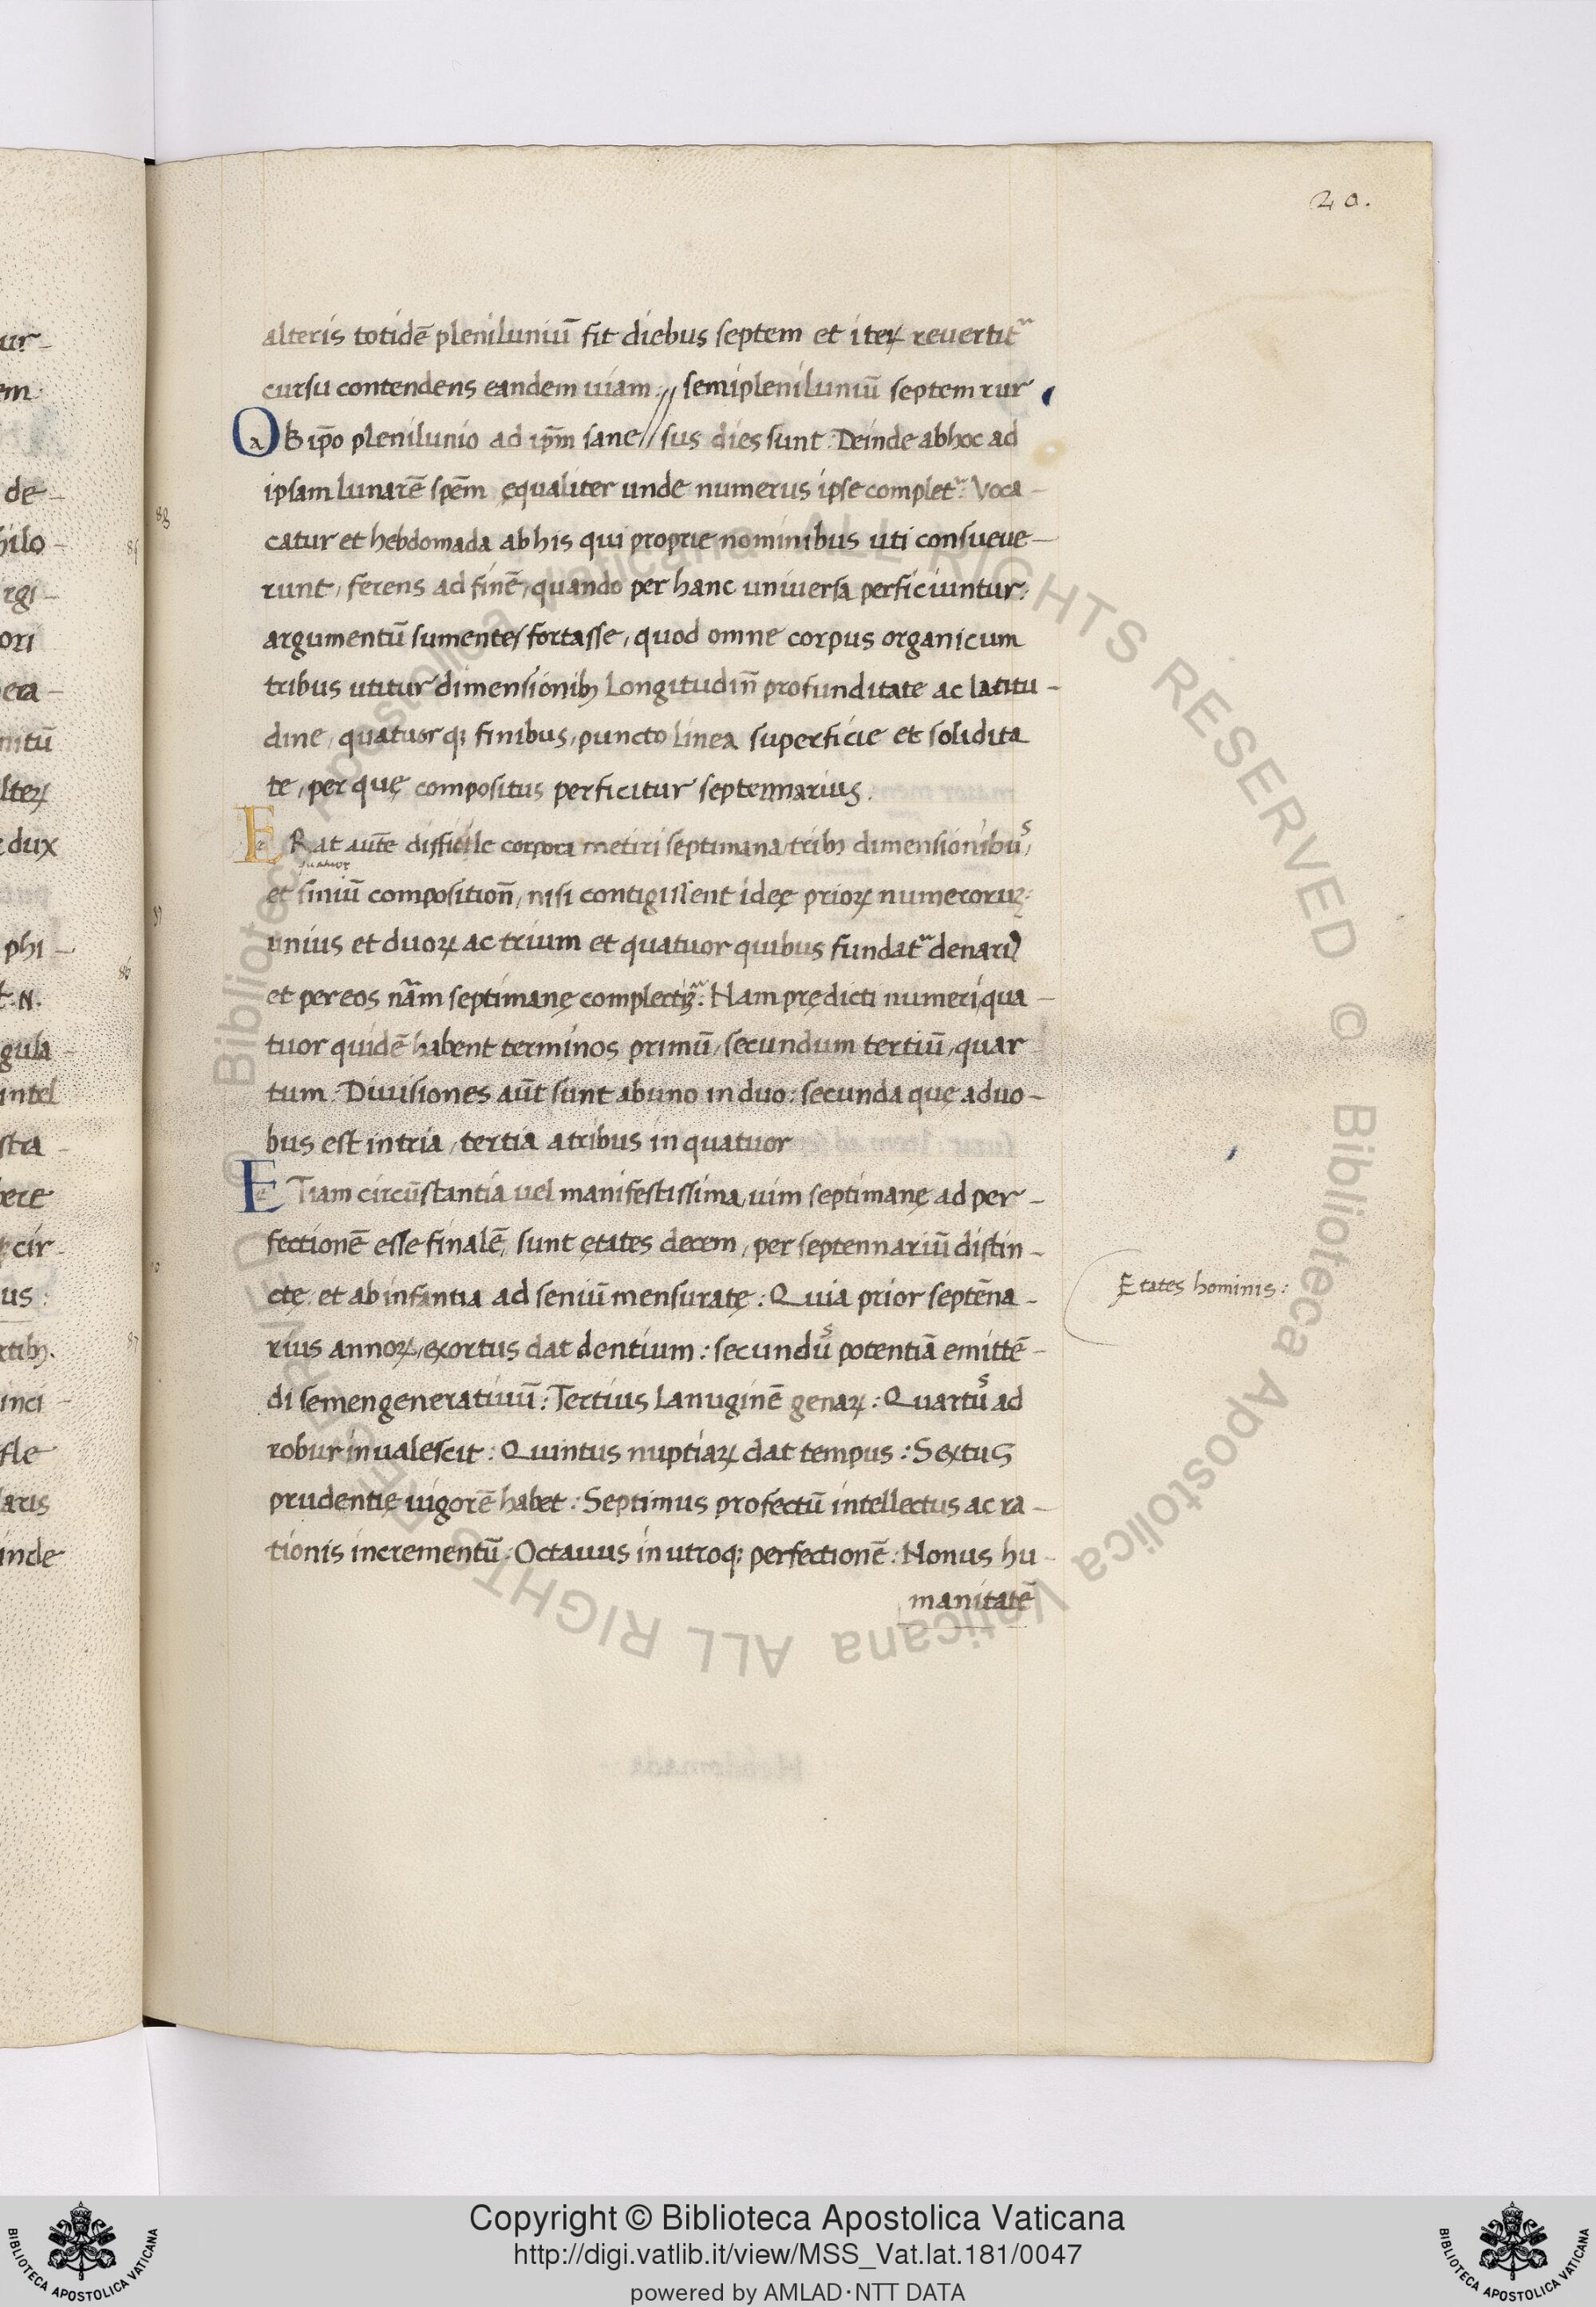 20.
alteris totidē pleniluniū fit diebus septem et iteꝝ revertitᵘʳ
cursu contendens eandem uiam: // semipleniluniū septem rur
OB ip̄o plenilunio ad ip̄m sane // sus dies sunt: Deinde ab hoc ad
ipsam lunarē spēm ęqualiter unde numerus ipse completᵘʳ: Voca-
catur et hebdomada ab his qui proprie nominibus uti consueue-
runt, ferens ad finē, quando per hanc uniuersa perficiuntur:
argumentū sumentes fortasse, quod omne corpus organicum
tribus utitur dimensionibꝫ Longitudin̄ profunditate ac latitu-
dine, quatuorqꝫ finibus, puncto linea superficie et solidita
te, per quę compositus perficitur septennarius.
ERat autē difficile corpora metiri septimana tribꝫ dimensionibus,
quatuor
et finiū composition̄, nisi contigissent ideę prioꝝ numerorum:
unius et duoꝝ ac trium et quatuor quibus fundatᵘʳ denariꝰ
et per eos nām septimanę Nam prędicti numeri, qua-
tuor quidē habent terminos primū, secundum tertiū, quar
tum: Diuisiones aūt sunt ab uno in duo: secunda quę a duo-
bus est in tria, tertia a tribus in quatuor
ETiam circūstantia uel manifestissima, uim septimanę ad per-
fectionē esse finalē, sunt ętates decem, per septennariū distin-
cte: et ab infantia ad seniū mensuratę: Quia prior septēna-
rius annoꝝ, exortus dat dentium: secundus potentiā emittē-
di semen generatiuū: Tertius Lanuginē genaꝝ: Quartus ad
robur inualescit: Quintus nuptiaꝝ dat tempus: Sextus
prudentię uigorē habet: Septimus profectū intellectus ac ra-
tionis incrementū: Octauus in utroqꝫ perfectionē: Nonus hu-
manitatē
Etates hominis:
Copyright © Biblioteca Apostolica Vaticana
http://digi.vatlib.it/view/MSS_Vat.lat.181/0047
powered by AMLAD·NTT DATA